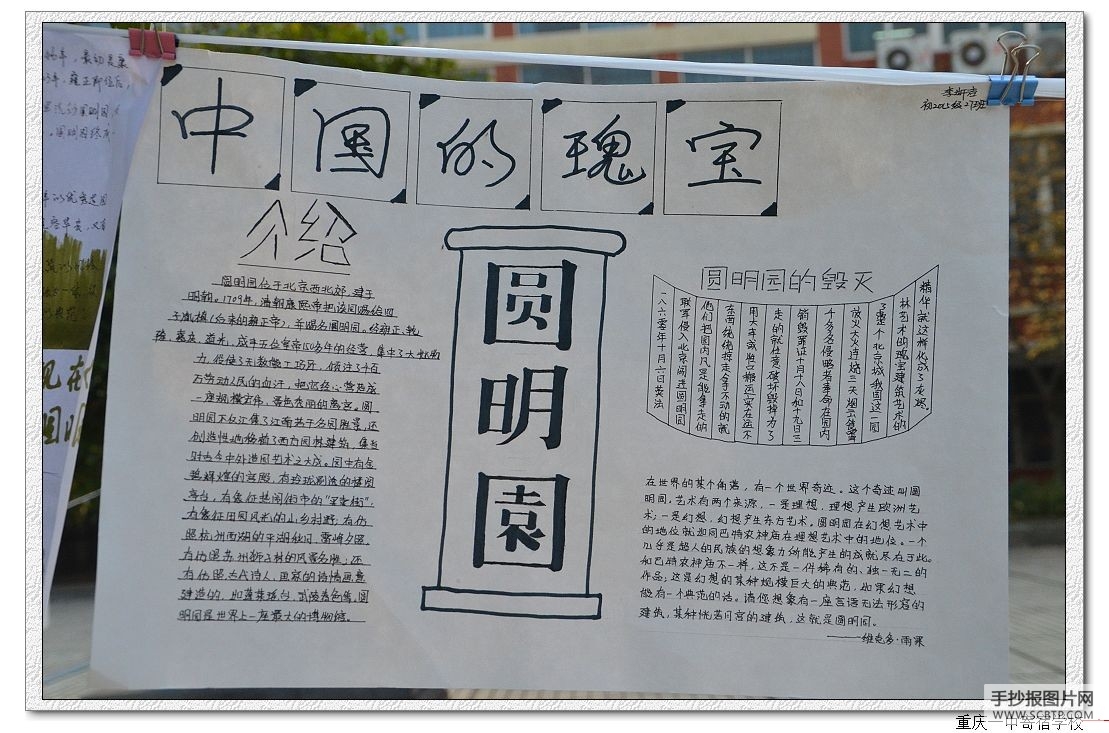 中国的瑰宝
初2015级27班
介绍
圆明园位于北京西北郊,建于
明朝。1709年,清朝康熙帝把该园赐给四
子胤禛(后来的雍正帝),并赐名圆明园。经雍正、乾
隆、嘉庆、道光、咸丰五位皇帝150多年的经营,集中了大批物
力,役使了无数能工巧匠,倾注了千百
万劳动人民的血汗,把它精心营造成
一座规模宏伟,景色秀丽的离宫。圆
明园不仅汇集了江南若干名园胜景,还
创造性地移植了西方园林建筑,集当
时古今中外造园艺术之大成。园中有金
碧辉煌的宫殿,有玲珑剔透的楼阁
亭台,有象征热闹街市的“买卖街”,
有象征田园风光的山乡村野,有仿
照杭州西湖的平湖秋月、雷峰夕照,
有仿照苏州狮子林的风景名胜;还
有仿照古代诗人、画家的诗情画意
建造的,如蓬莱瑶台,武陵春色等。圆
明园是世界上一座最大的博物馆。
圆明園
圆明园的毁灭
一八六零年十月六日英法
联军侵入北京闯进圆明园
他们把园内凡是能拿走的
东西统统掠走拿不动的就
用大车或牲口搬运实在运不
走的就任意破坏毁掉为了
销毁罪证十月十八日和十九日三
千多名侵略者奉命在园内
放火大火连烧三天烟云笼罩
了整个北京城我国这一园
林艺术的瑰宝建筑艺术的
精华就这样化成了灰烬。
在世界的某个角落,有一个世界奇迹。这个奇迹叫圆
明园,艺术有两个来源,一是理想,理想产生欧洲艺
术;一是幻想,幻想产生东方艺术。圆明园在幻想艺术中
的地位就如同巴特农神庙在理想艺术中的地位。一个
几乎是超人的民族的想象力所能产生的成就尽在于此。
和巴特农神庙不一样,这不是一件稀有的、独一无二的
作品;这是幻想的某种规模巨大的典范,如果幻想
能有一个典范的话。请您想象有一座言语无法形容的
建筑,某种恍若月宫的建筑,这就是圆明园。
——维克多·雨果
手抄报图片网
WWW.SCBTP.COM
重庆一中寄宿学校